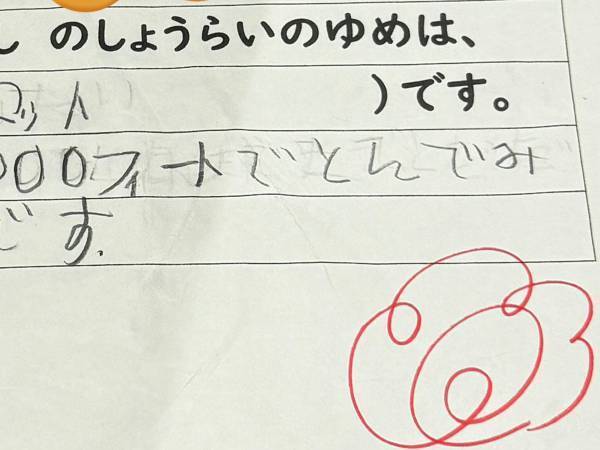 のしょうらいのゆめは、
ロット )です。
000フィートでとんでみ
です.